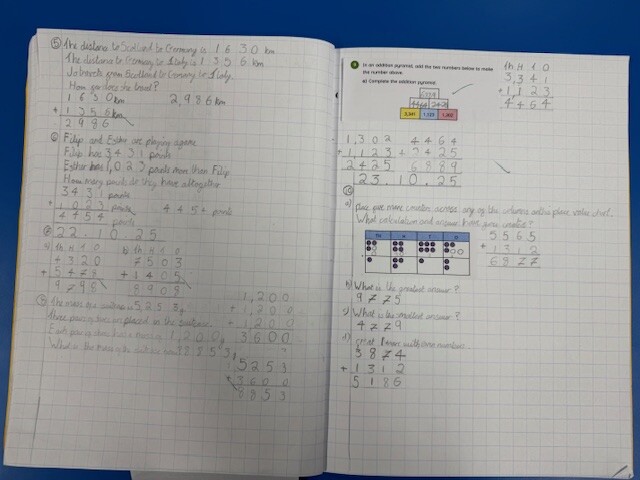 5 The distance to Scotland to Germany is 1630 km
The distance to Germany to Italy is 1356 km
Jo travels from Scotland to Germany to Italy.
How far does she travel?
1630 km 2,986 km
+ 1356 km
2986
6 Filip and Esther are playing a game
Filip has 3431 points
Esther has 1,023 points more than Filip
How many points do they have altogether
3431 points
+ 1023 points 4454 points
4454
22.10.25
a) Th H T O b) Th H T O
+ 320 7503
5478 + 1405
9798 8908
The mass of the suitcase is 5253g
Three pairs of shoes are placed in the suitcase
Each pair of shoes has a mass of 1,200g
What is the mass of the suitcase now? 8853g
1,200
+ 1,200
+ 1,200
3600
5253
3600
8853
9 In an addition pyramid, add the two numbers below to make
the number above.
a) Complete the addition pyramid.
4464 2425
3,341 1,123 1,302
Th H T O
3,341
+ 1,123
4,464
1,302 4464
+ 1123 + 2425
2425 6889
23.10.25
10
a) place five more counters across any of the columns on the place value chart.
What calculation and answer have you created?
Th H T O
5565
+ 1312
6877
b) What is the greatest answer?
9775
c) What is the smallest answer?
4779
d)
3874
+ 1312
5186